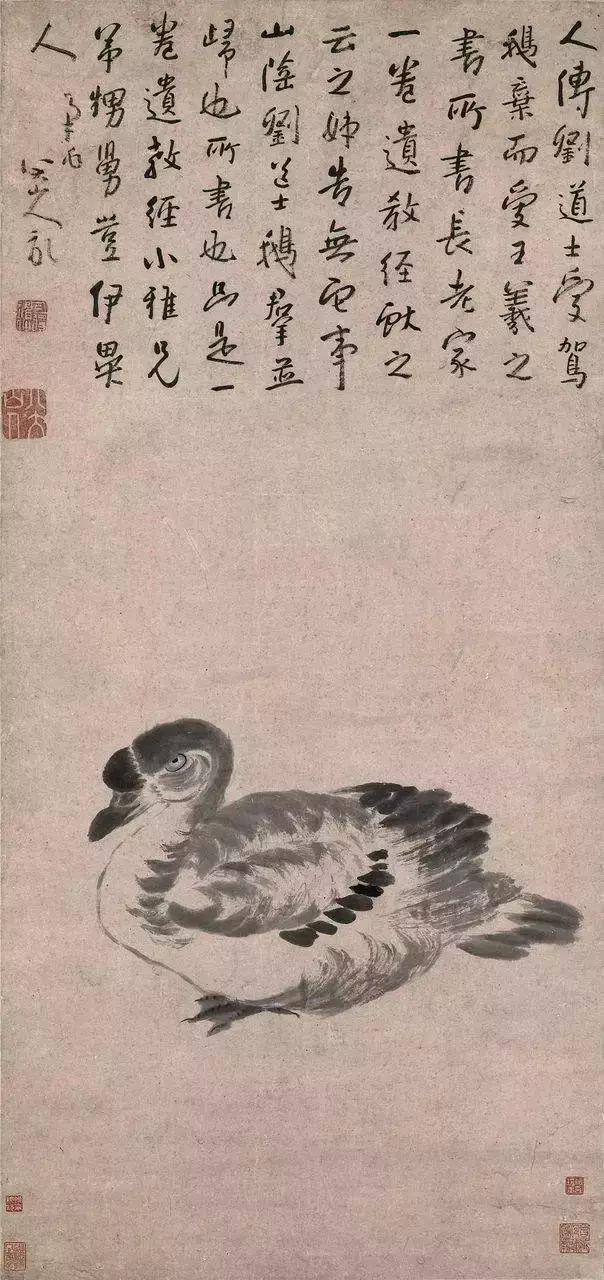 人傳劉道士愛駕
鵝棄而愛王羲之
書所書長老家
一卷遺教經歟之
云之姊告無它事
山陰劉道士鵝羣並
歸也所書也只是一
卷遺教經小雅兄
弟甥舅豈伊異
人
八大山人記
八大山人